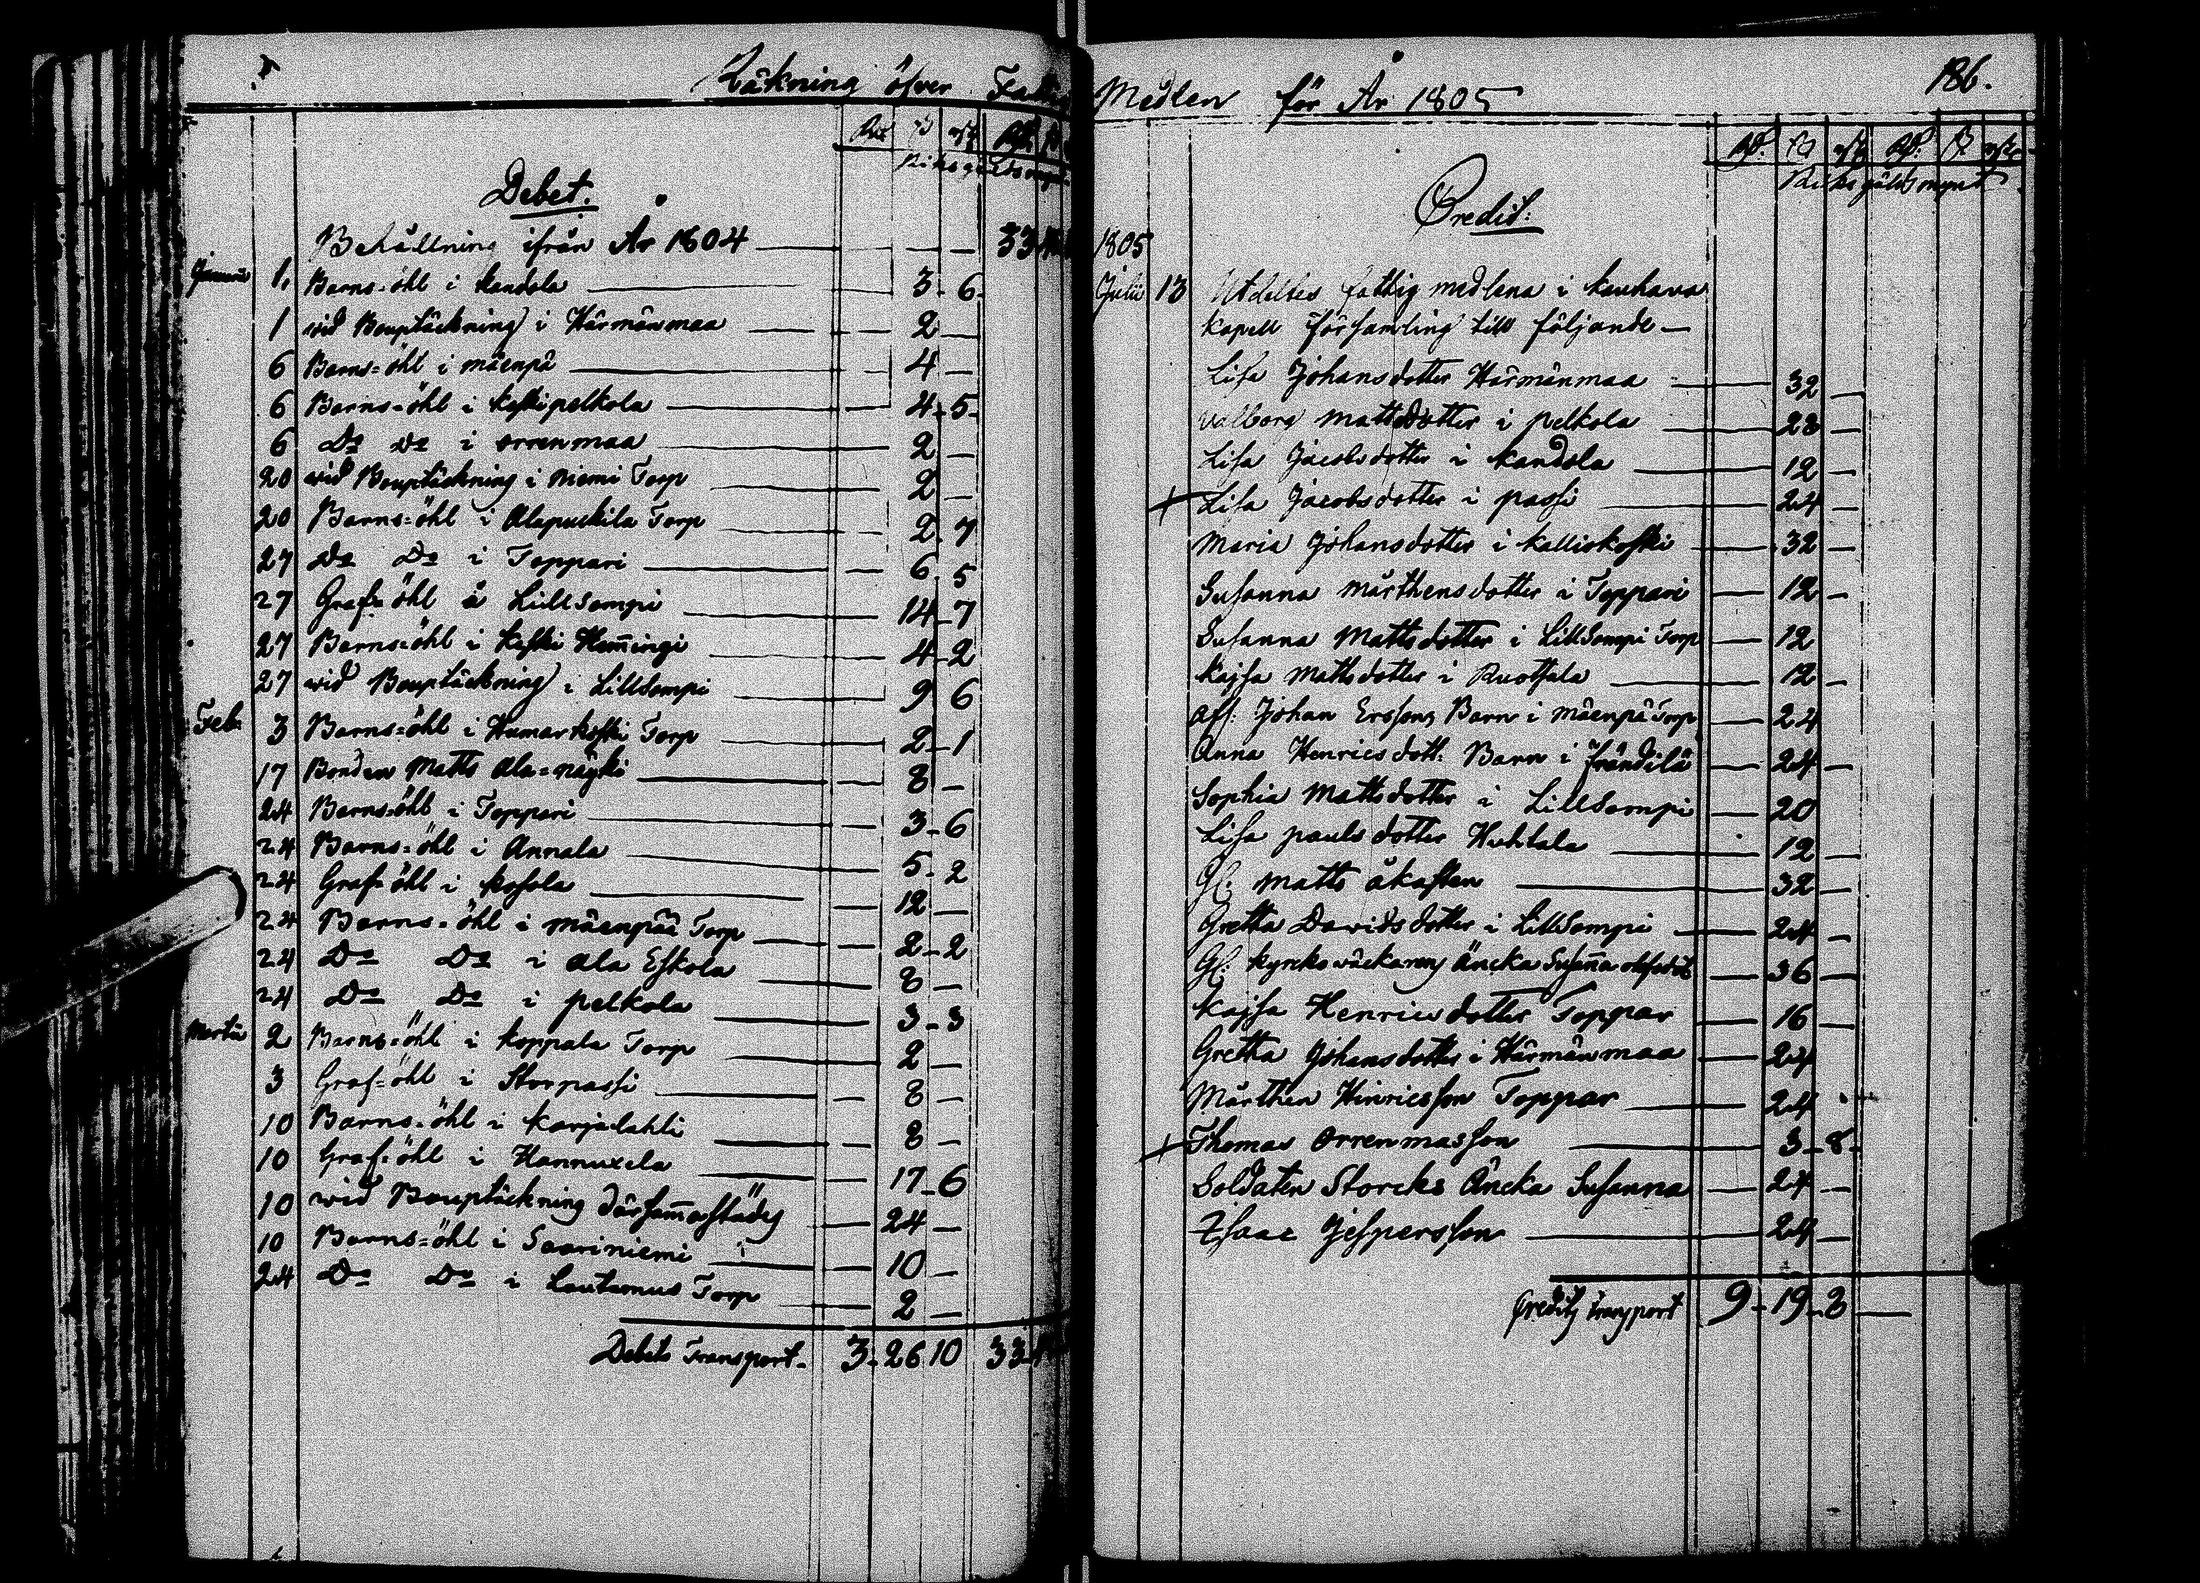 Räkning öfver
Debet.
Riksgälds
Behållning ifrån År 1804 — — — 33
Januari 1. Barns=öhl i Kandola — 3 - 6
1 wid Bouptäckning i Härmänmaa — 2 —
6 Barns=öhl i mäenpä — 4 —
6 Barns=öhl i Keskipelkola — 4 - 5
6 Do Do i orrenmaa — 2 —
20 wid Bouptäckning i Niemi Torp — 2 —
20 Barns=öhl i Alapuckila Torp — 2 - 7
27 Do Do i Toppari — 6 5
27 Graf=öhl å Lillsompi — 14 - 7
27 Barns=öhl i Keski Hemingi — 4 - 2
27 wid Bouptäckning i Lillsompi — 9 6
Feb. 3 Barns=öhl i Humarkoski Torp — 2 - 1
17 Bonden Matts Ala=näyki — 8 —
24 Barns=öhl i Toppari — 3 - 6
24 Barns=öhl i Annala — 5 - 2
24 Graf=öhl i Kosola — 12 —
24 Barns=öhl i mäenpää Torp — 2 - 2
24 Do Do i Ala Eskola — 8 —
24 Do Do i pelkola — 3 - 3
Martii 2 Barns=öhl i Koppala Torp — 2 —
3 Graf=öhl i Storpassi — 8 —
10 Barns=öhl i Karjalahti — 8 —
10 Graf=öhl i Hannuxela — 17 - 6
10 wid Bouptäckning därsammastädes — 24 —
10 Barns=öhl i Saariniemi — 10 —
24 Do Do i Lautamus Torp — 2 —
Debets Transport. 3 - 26 10 33
186.
Medlen för År 1805
Credit:
Riksgälds mynt
1805
Julii 13 Utdeltes fattig medlena i Kauhava
Kapell församling till följande —
Lisa Johansdotter Härmänmaa — 32 —
Valborg Mattsdotter i pelkola — 28 —
Lisa Jacobsdotter i Kandola — 12 —
+ Lisa Jacobsdotter i passi — 24 —
Maria Johansdotter i Kalliokoski — 32 —
Susanna Mårthensdotter i Toppari — 12 —
Susanna Mattsdotter i Lillsompi Torp — 12
Kajsa Mattsdotter i Ruotsala — 12 —
Afl: Johan Erssons Barn i mäenpä Torp — 24
Anna Henricsdott: Barn i Frändilä — 24 —
Sophia Mattsdotter i Lillsompi — 20
Lisa paulsdotter Huhtala — 12 —
Gl: Matts åkasten — 32 —
Gretha Davidsdotter i Lillsompi — 24 —
Gl: Kyrckoväckarens Äncka Susanna — 36 —
Kajsa Henricsdotter Toppar — 16 —
Gretha Johansdotter i Härmänmaa — 24
Mårthen Hinricsson Toppar — 24
+ Thomas Orrenmasson — 3 - 8
Soldaten Storcks Äncka Susanna — 24 —
Isaac Jespersson — 24 —
Credits Transport 9 - 19 - 8 —